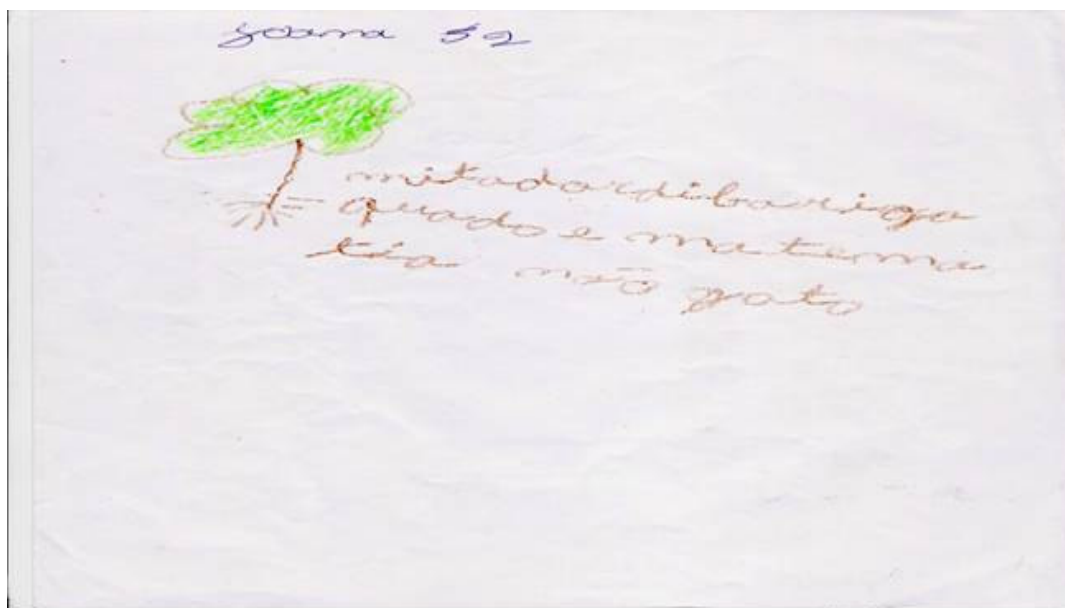 Joana 32
mitadordibariga
quado e matema
tia não gato